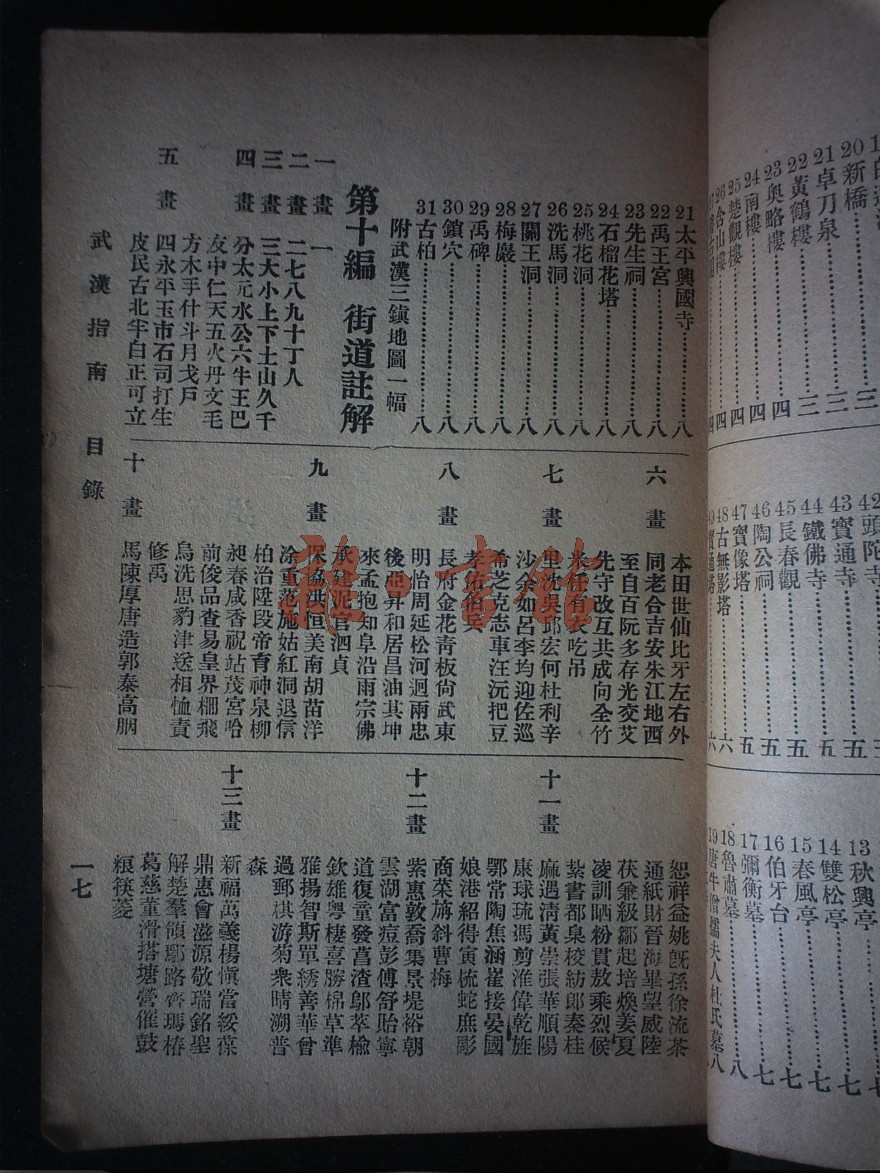 新橋 20 三
卓刀泉 21 三
黃鶴樓 22 三
奧略樓 23 四
南樓 24 四
楚觀樓 25 四
頭陀寺 42 五
寶通寺 43 五
鐵佛寺 44 五
長春觀 45 五
陶公祠 46 五
寶像塔 47 五
古無影塔 48 六
秋興亭 13 七
雙松亭 14 七
春風亭 15 七
伯牙台 16 七
禰衡墓 17 七
魯肅墓 18 八
21 太平興國寺 八
22 禹王宮 八
23 先生祠 八
24 石榴花塔 八
25 桃花洞 八
26 洗馬洞 八
27 關王洞 八
28 梅巖 八
29 禹碑 八
30 鎖穴 八
31 古柏 八
附武漢三鎮地圖一幅
第十編 街道註解
一畫 一
二畫 二七八九十丁人
三畫 三大小上下士山久千
四畫 分太元水公六牛王巴
友中仁天五火丹文毛
方木手什斗月戈戶
五畫 四永平玉市石司打生
皮民古北半白正可立
本田世仙比牙左右外
六畫 同老合吉安朱江地西
至自百阮多存光交艾
先守改互共成向全竹
米任有衣吃吊
七畫 里沈吳邱宏何杜利辛
沙余如呂李均迎佐巡
希芝克志車汪沅把豆
孝佑伯兵
八畫 長府金花靑板尙武東
明怡周延松河迴兩忠
後亞昇和居昌油其坤
來孟抱知阜沿雨宗佛
承建泥官泗貞
九畫 保協洪恒美南胡苗洋
凃重范施姑紅洞退信
柏治陞段帝育神泉柳
昶春咸香祝站茂宮哈
前俊品查易皇界柵飛
烏洗思豹津送相恤責
修禹
十畫 馬陳厚唐造郭泰高胭
恕祥益姚旣孫徐流茶
通紙財晉海畢望威陸
茯兼級鄒起培煥姜夏
凌訓晒粉貫敖乘烈候
紮書都臬梭紡郎秦桂
十一畫 麻遇淸黃崇張華順陽
康球琉馮剪淮偉乾旌
鄂常陶焦涵崔接晏國
娘港紹得寅梳蛇庶彫
商菜旃斜曹梅
十二畫 紫惠敦喬集景堤裕朝
雲湖富痘彭傅舒貽寧
道復童發菖渣鄔萃楡
欽雄粵棲喜勝棉草準
雅揚智斯單綉善華曾
過郵棋游菊衆晴溯普
森
十三畫 新福萬義楊愼當綏葆
鼎惠會滋源敬瑞銘聖
解楚羣領鄢路齊瑪椿
葛慈董滑搭塘營催鼓
粮筷菱
武漢指南 目錄
一七